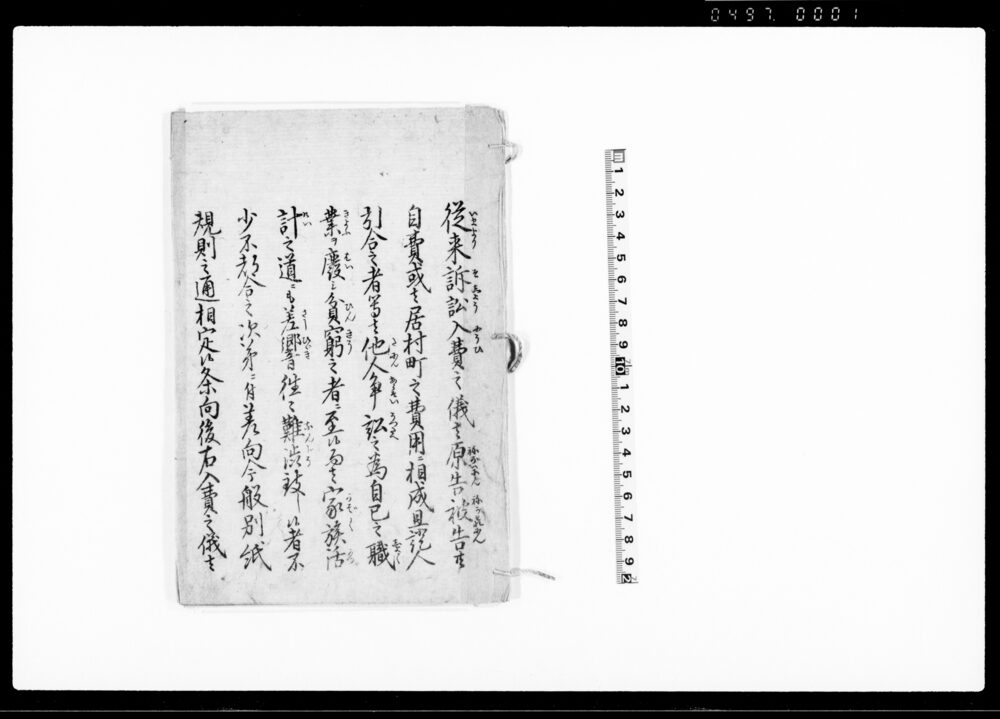 0497. 0001
従来訴訟入費之儀者原告被告共
自費或者居村町之費用ニ相成且証人
引合之者等者他人争訟之為自己之職
業ヲ廃シ貧窮之者ニ至候而者家族活
計之道ニも差響往々難渋致し候者不
少不都合之次第ニ付差向今般別紙
規則之通相定候条向後右入費之儀者
1 2 3 4 5 6 7 8 9 10 1 2 3 4 5 6 7 8 9 2